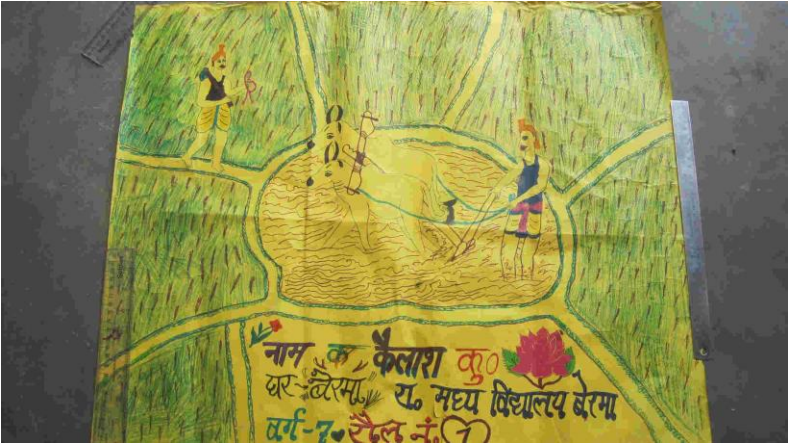 नाम क कैलाश कु०
घर-बेरमा, रा. मध्य विद्यालय बेरमा
वर्ग-7 रौल नं. 7